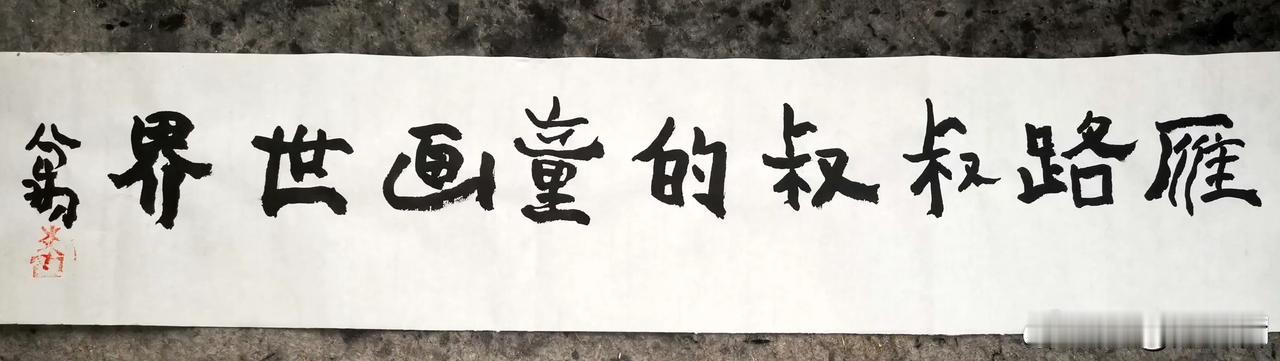 雁路叔叔的童画世界